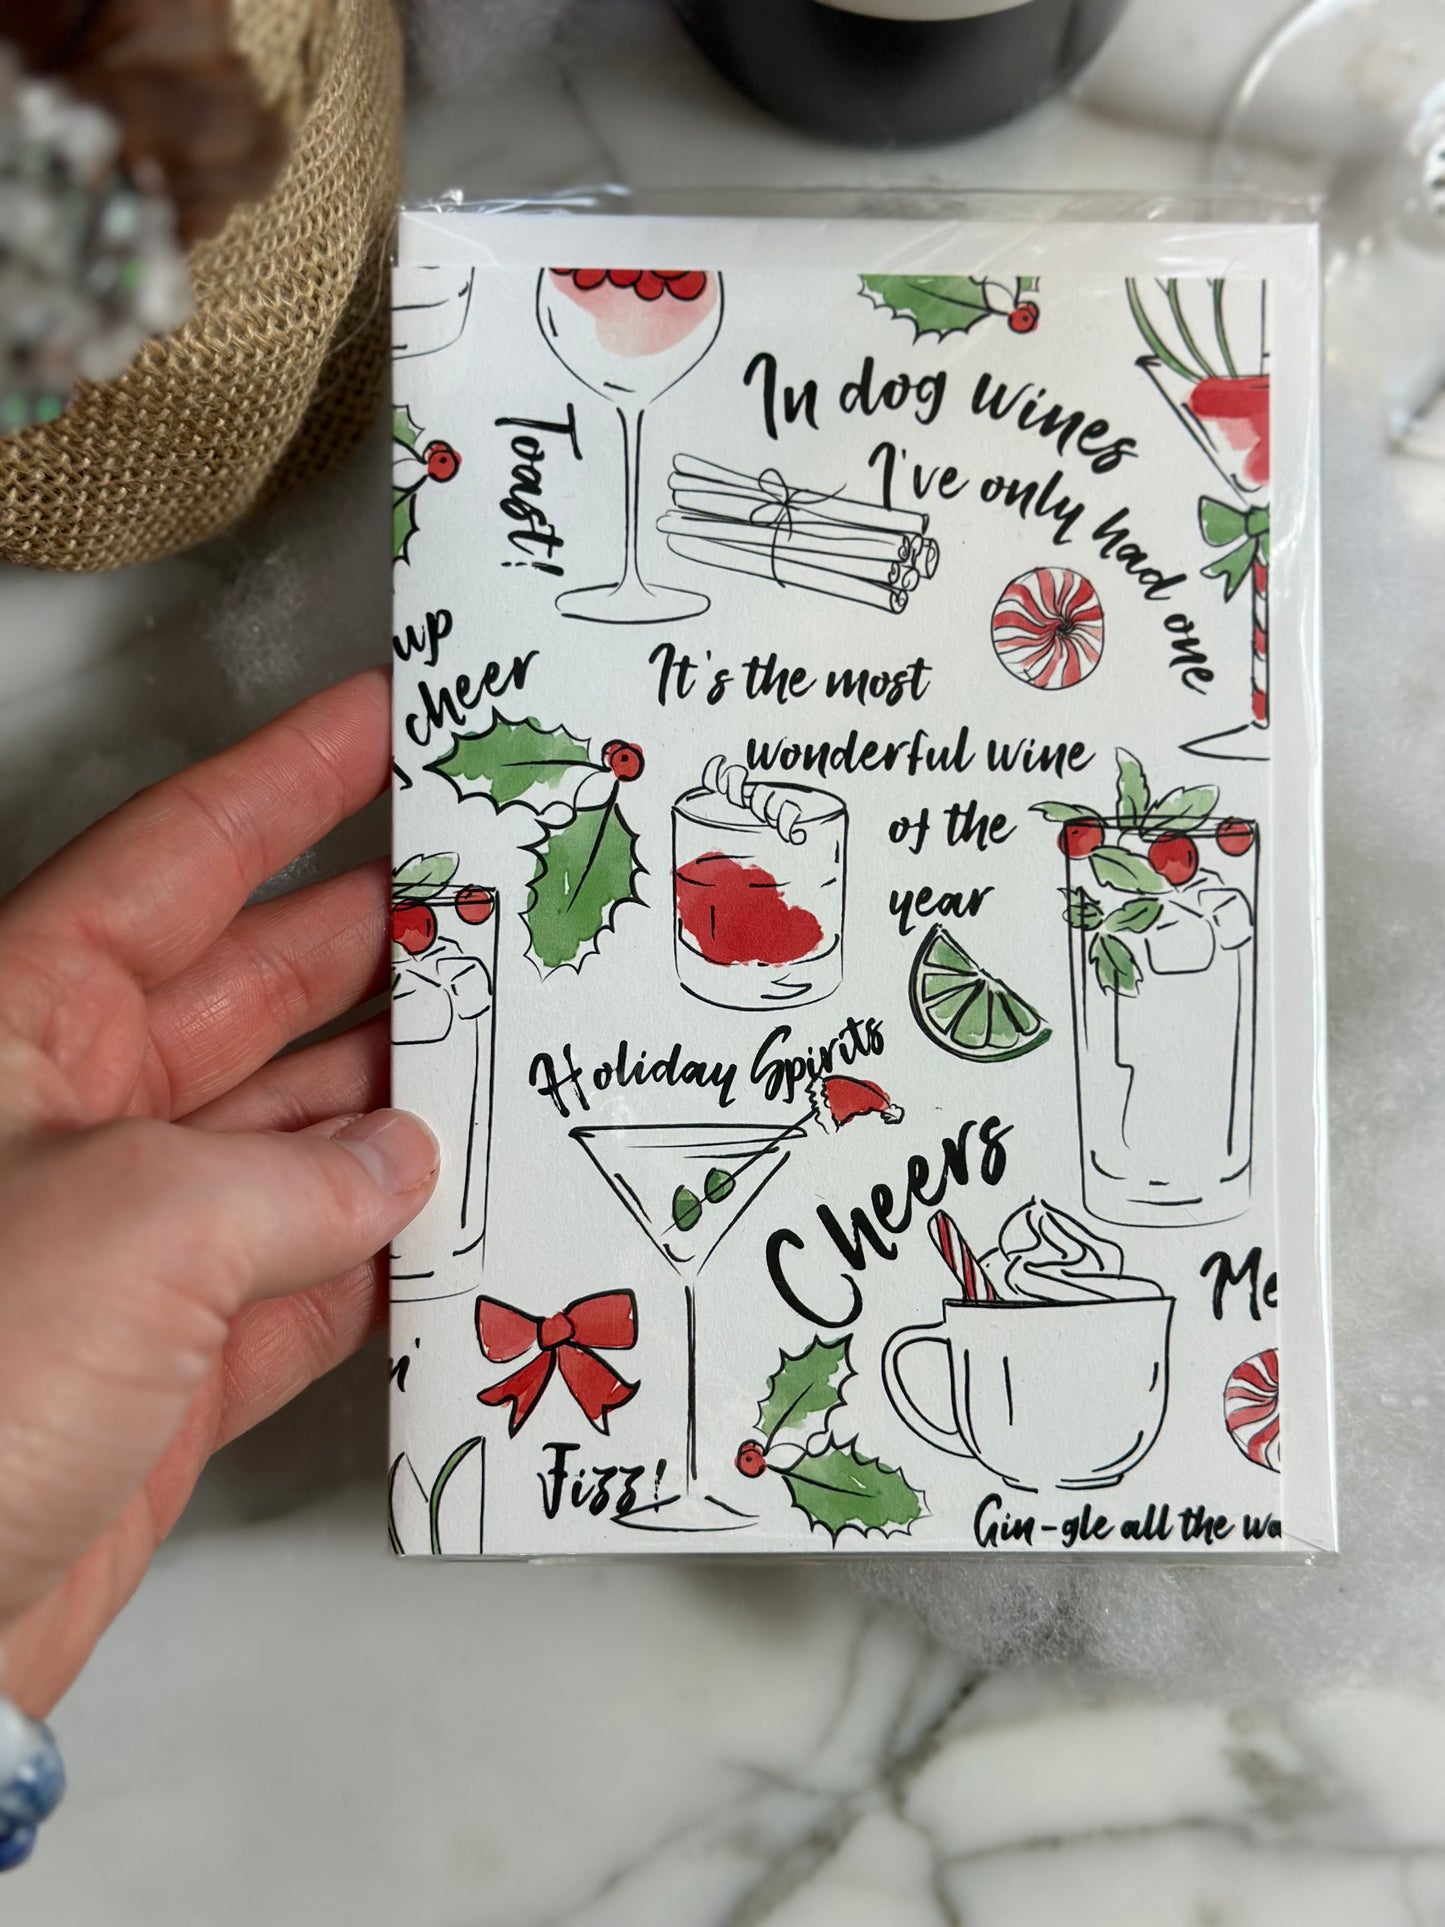 In dog wines
I've only had one
Toast!
up
cheer
It's the most
wonderful wine
of the
year
Holiday Spirits
Cheers
Me
Fizz!
Gin-gle all the wa